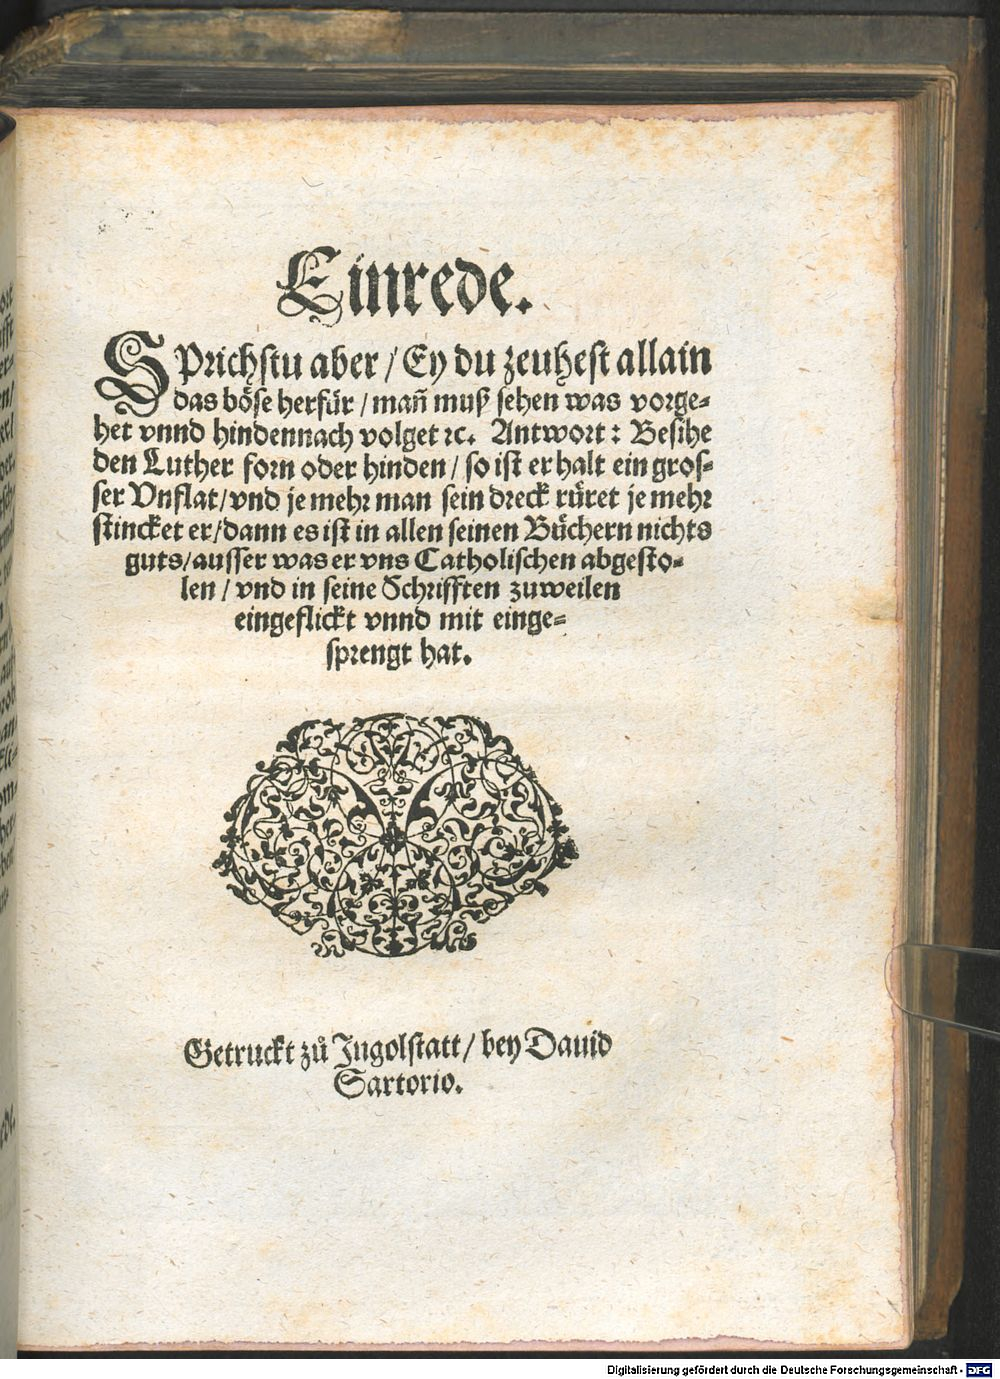 Einrede.
SPrichstu aber / Ey du zeuhest allain
das böse herfür / mañ muß sehen was vorge-
het vnnd hindennach volget ꝛc. Antwort: Besihe
den Luther forn oder hinden / so ist er halt ein gros-
ser Vnflat / vnd je mehr man sein dreck rüret je mehr
stincket er / dann es ist in allen seinen Büchern nichts
guts / ausser was er vns Catholischen abgesto-
len / vnd in seine Schrifften zuweilen
eingeflickt vnnd mit einge-
sprengt hat.
Getruckt zů Ingolstatt / bey Dauid
Sartorio.
Digitalisierung gefördert durch die Deutsche Forschungsgemeinschaft - DFG